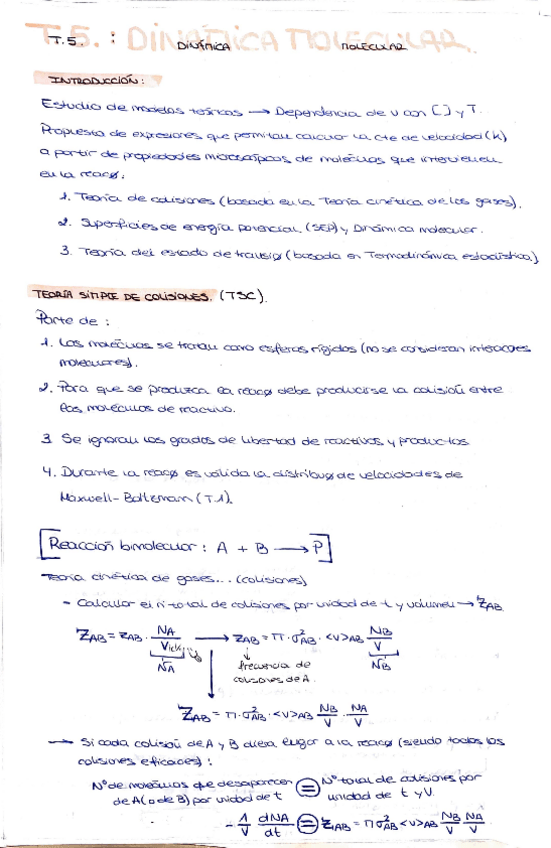 T.5.: DINÁMICA MOLECULAR.
INTRODUCCIÓN:
Estudio de modelos teóricos → Dependencia de v con [] y T.
Propuesta de expresiones que permitan calcular la cte de velocidad (k)
a partir de propiedades microscópicas de moléculas que intervienen
en la reacø:
1. Teoría de colisiones (basada en la Teoría cinética de los gases).
2. Superficies de energía potencial (SEP) y Dinámica molecular.
3. Teoría del estado de transiø (basada en Termodinámica estadística)
TEORÍA SIMPLE DE COLISIONES. (TSC).
Parte de:
1. Las moléculas se tratan como esferas rígidas (no se consideran interacøes
moleculares).
2. Para que se produzca la reacø debe producirse la colisión entre
las moléculas de reactivo.
3. Se ignoran los grados de libertad de reactivos y productos
4. Durante la reacø es válida la distribuø de velocidades de
Maxwell-Boltzman (T.1).
Reacción bimolecular: A + B → P
Teoría cinética de gases... (colisiones)
- Calcular el nº total de colisiones por unidad de t y volumen → Z_AB
Z_AB = z_AB · N_A/V → z_AB = π · σ²_AB · <v>_AB N_B/V
frecuencia de
colisiones de A.
Z_AB = π · σ²_AB · <v>_AB N_B/V · N_A/V
→ Si cada colisión de A y B diera lugar a la reacø (siendo todas las
colisiones eficaces):
Nº de moléculas que desaparecen = Nº total de colisiones por
de A (o de B) por unidad de t unidad de t y V.
- 1/V dN_A/dt = Z_AB = π σ²_AB <v>_AB N_B/V N_A/V